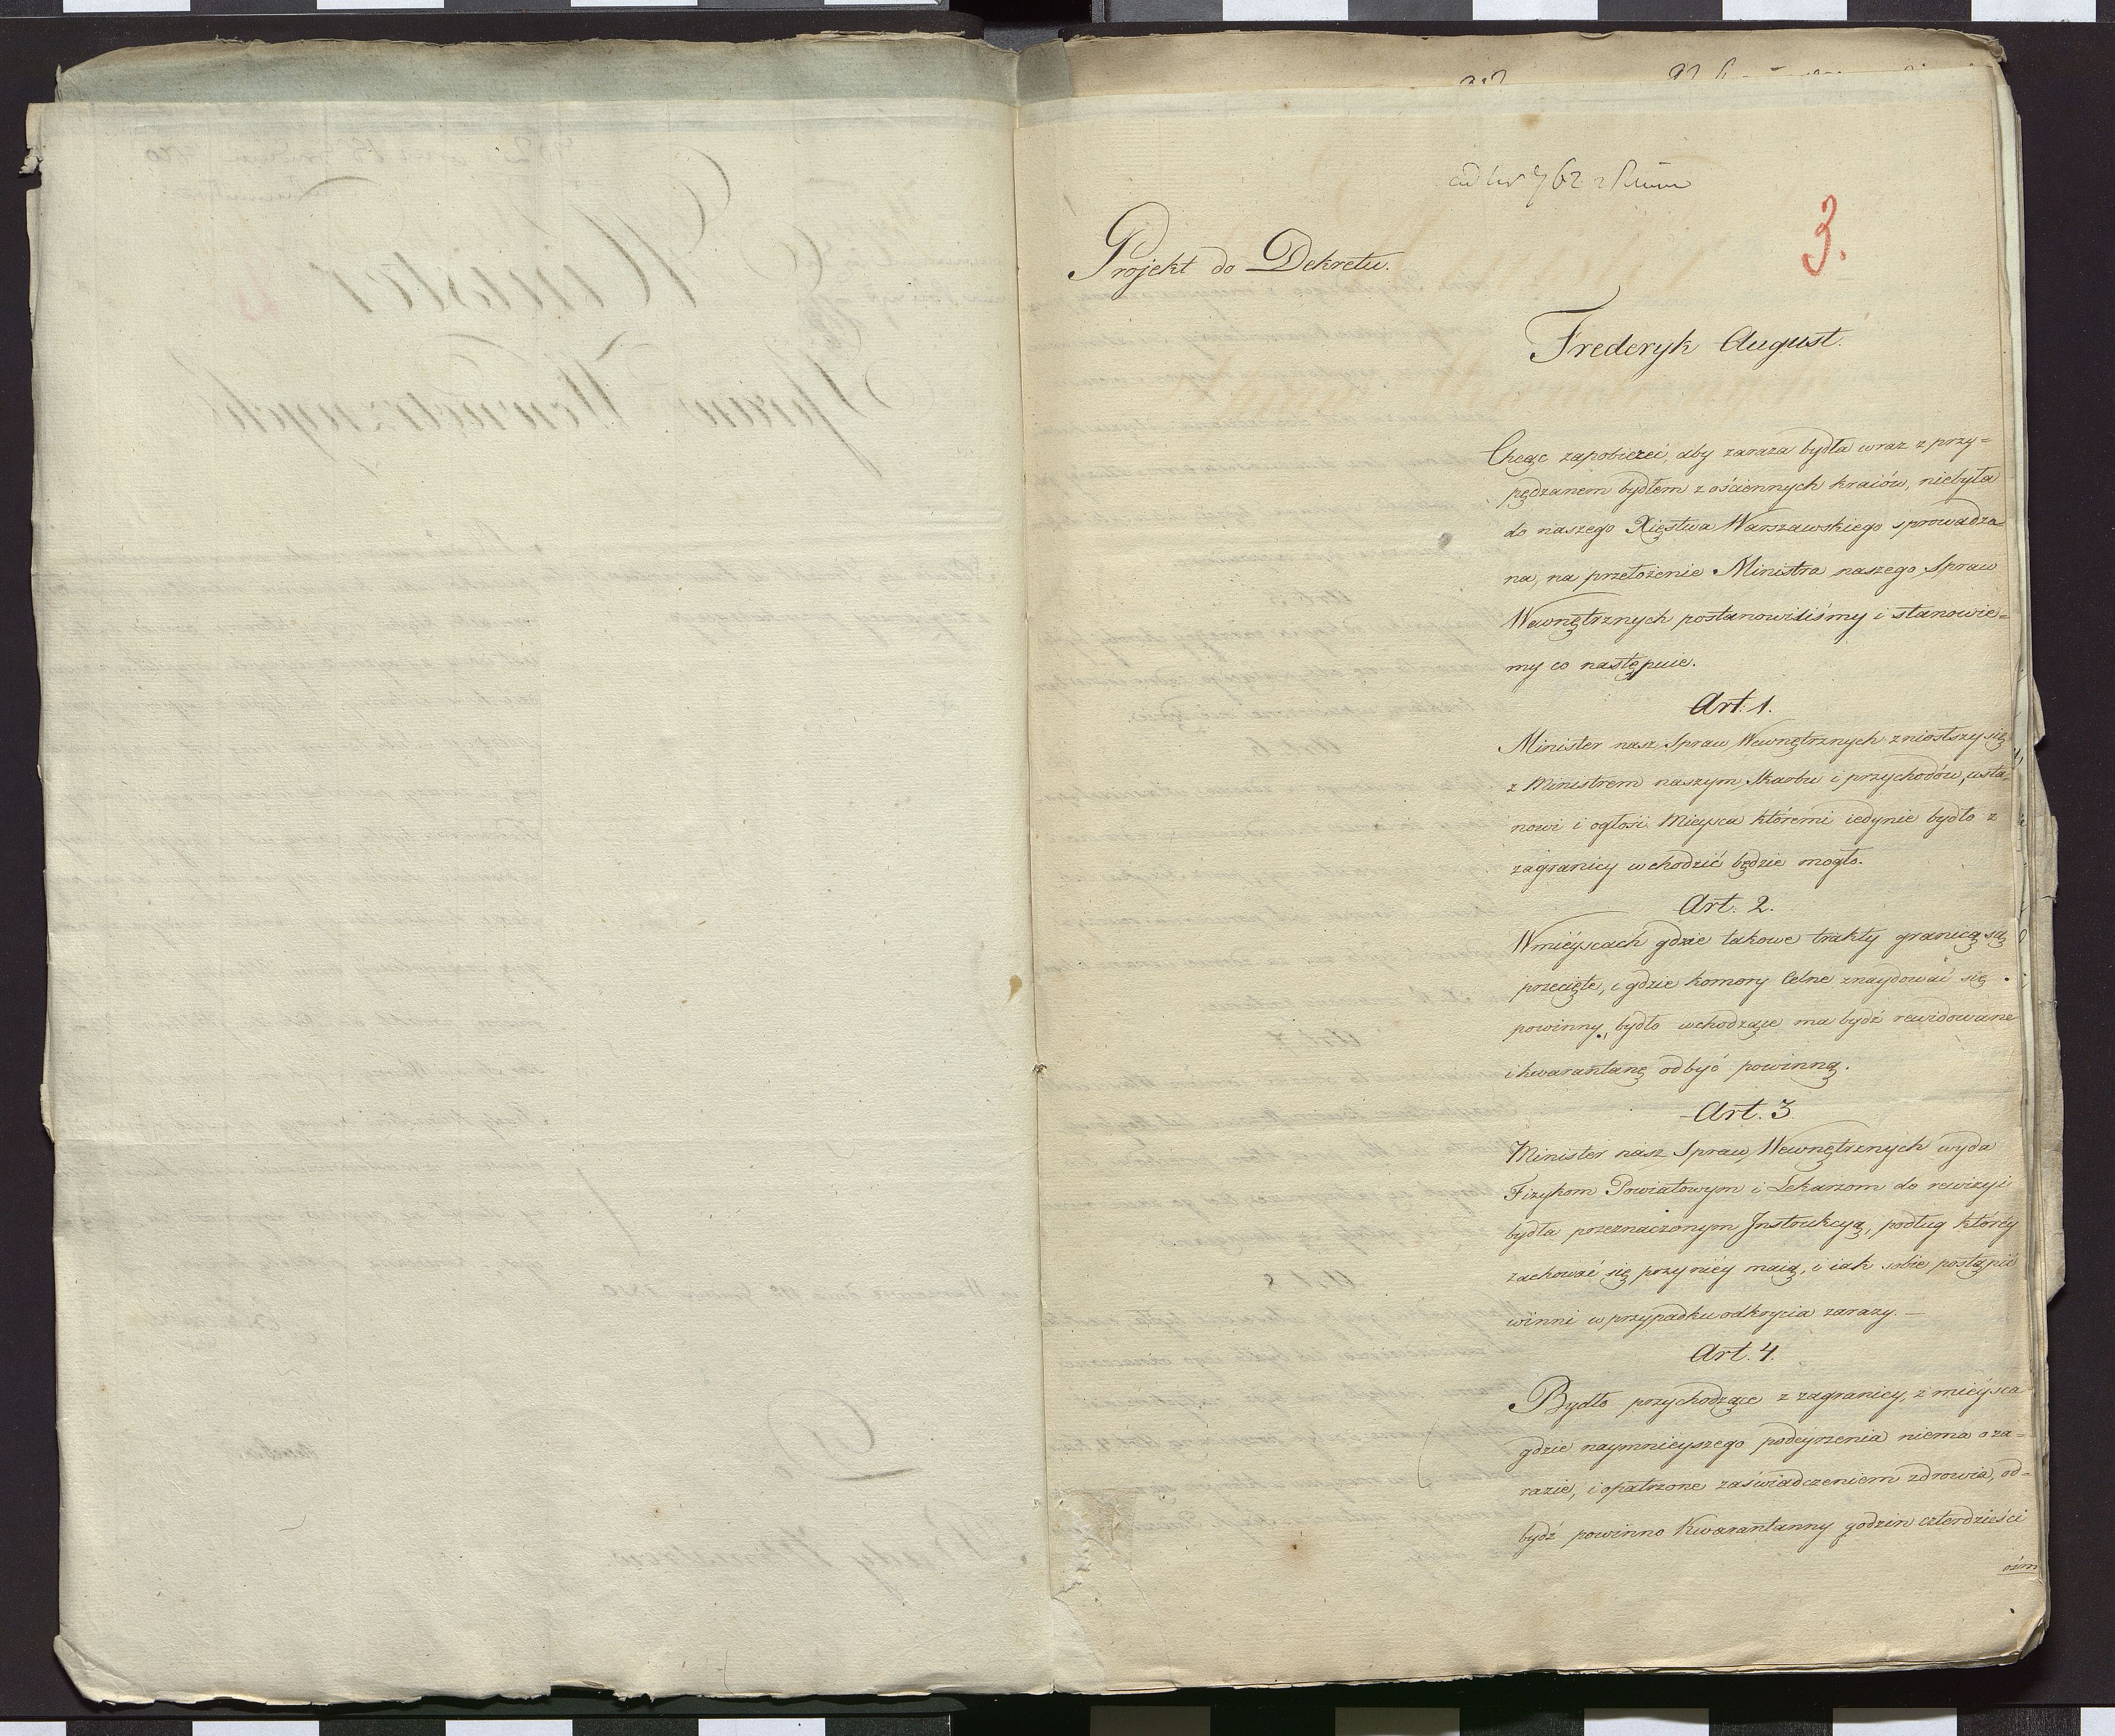 ad Nr 762
3.
Projekt do Dekretu.
Frederyk August.
Chcąc zapobieżeć, aby zaraza bydła wraz z przy=
pędzanem bydłem z ościennych kraiów, niebyła
do naszego Xięstwa Warszawskiego sprowadza
na, na przełożenie Ministra naszego Spraw
Wewnętrznych postanowiliśmy i stanowie=
my co następuie.
Art. 1.
Minister nasz Spraw Wewnętrznych zniosłszy się
z Ministrem naszym Skarbu i przychodów, usta=
nowi i ogłosi Mieysca któremi iedynie bydło z
zagranicy wchodzić będzie mogło.
Art. 2.
W mieyscach gdzie takowe trakty granicą są
przecięte, i gdzie komory Celne znaydować się
powinny, bydło wchodzące ma bydź rewidowane
i kwarantanę odbyć powinną.
Art. 3
Minister nasz Spraw Wewnętrznych wyda
Fizykom Powiatowym i Lekarzom do rewizyi
bydła przeznaczonym Instrukcyą, podług którey
zachować się przy niéy maią, i iak sobie postąpić
winni w przypadku odkrycia zarazy. —
Art. 4.
Bydło przychodzące z zagranicy, z mieysca
gdzie naymnieyszego podeyrzenia niema o za=
razie, i opatrzone zaświadczeniem zdrowia, od=
bydź powinno Kwarantanny godzin czterdzieści
ośm